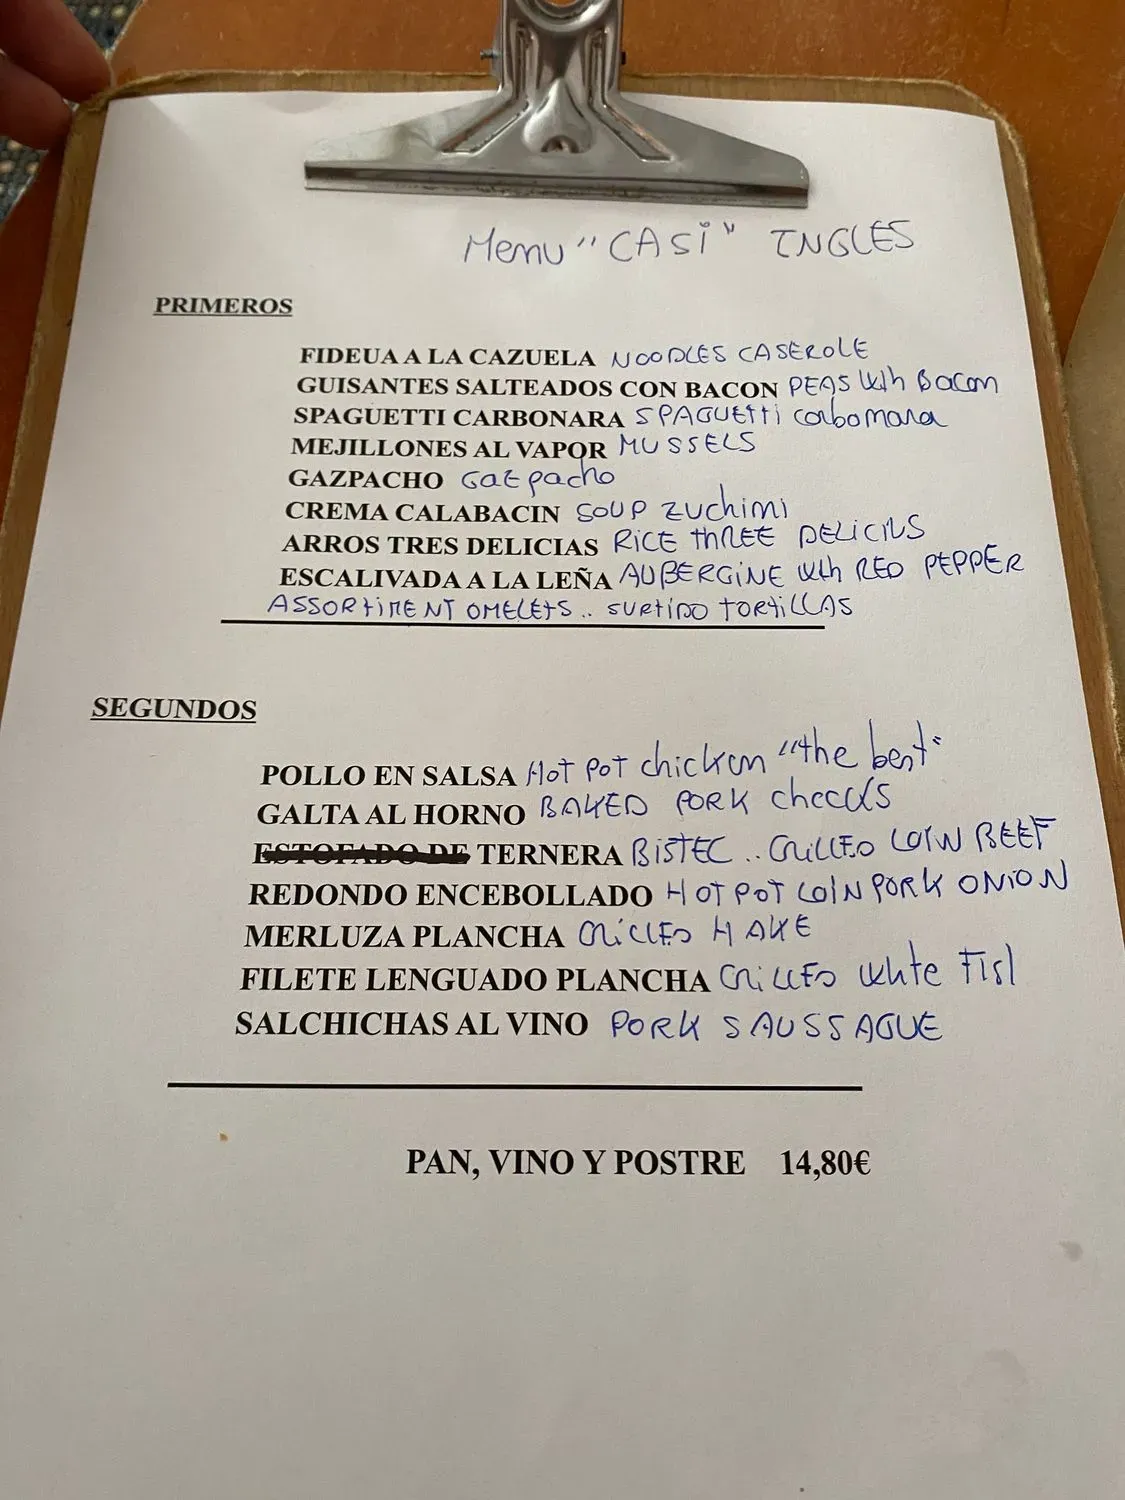 Menu "CASi" INGLES
PRIMEROS
FIDEUA A LA CAZUELA NOODLES CASEROLE
GUISANTES SALTEADOS CON BACON PEAS With Bacon
SPAGUETTI CARBONARA SPAGUETTi Carbonara
MEJILLONES AL VAPOR MUSSELS
GAZPACHO Gazpacho
CREMA CALABACIN SOUP Zuchini
ARROS TRES DELICIAS RICE THREE DELICIUS
ESCALIVADA A LA LEÑA AUBERGINE With RED PEPPER
ASSORTIMENT OMELETS.. SURTIDO TORTILLAS
SEGUNDOS
POLLO EN SALSA HOT POT chicken "the best"
GALTA AL HORNO BAKED PORK cheecks
ESTOFADO DE TERNERA BISTEC.. GRILLED LOIN BEEF
REDONDO ENCEBOLLADO HOT POT LOIN PORK ONION
MERLUZA PLANCHA GRILLED HAKE
FILETE LENGUADO PLANCHA GRILLED White Fish
SALCHICHAS AL VINO PORK SAUSSAGUE
PAN, VINO Y POSTRE 14,80€